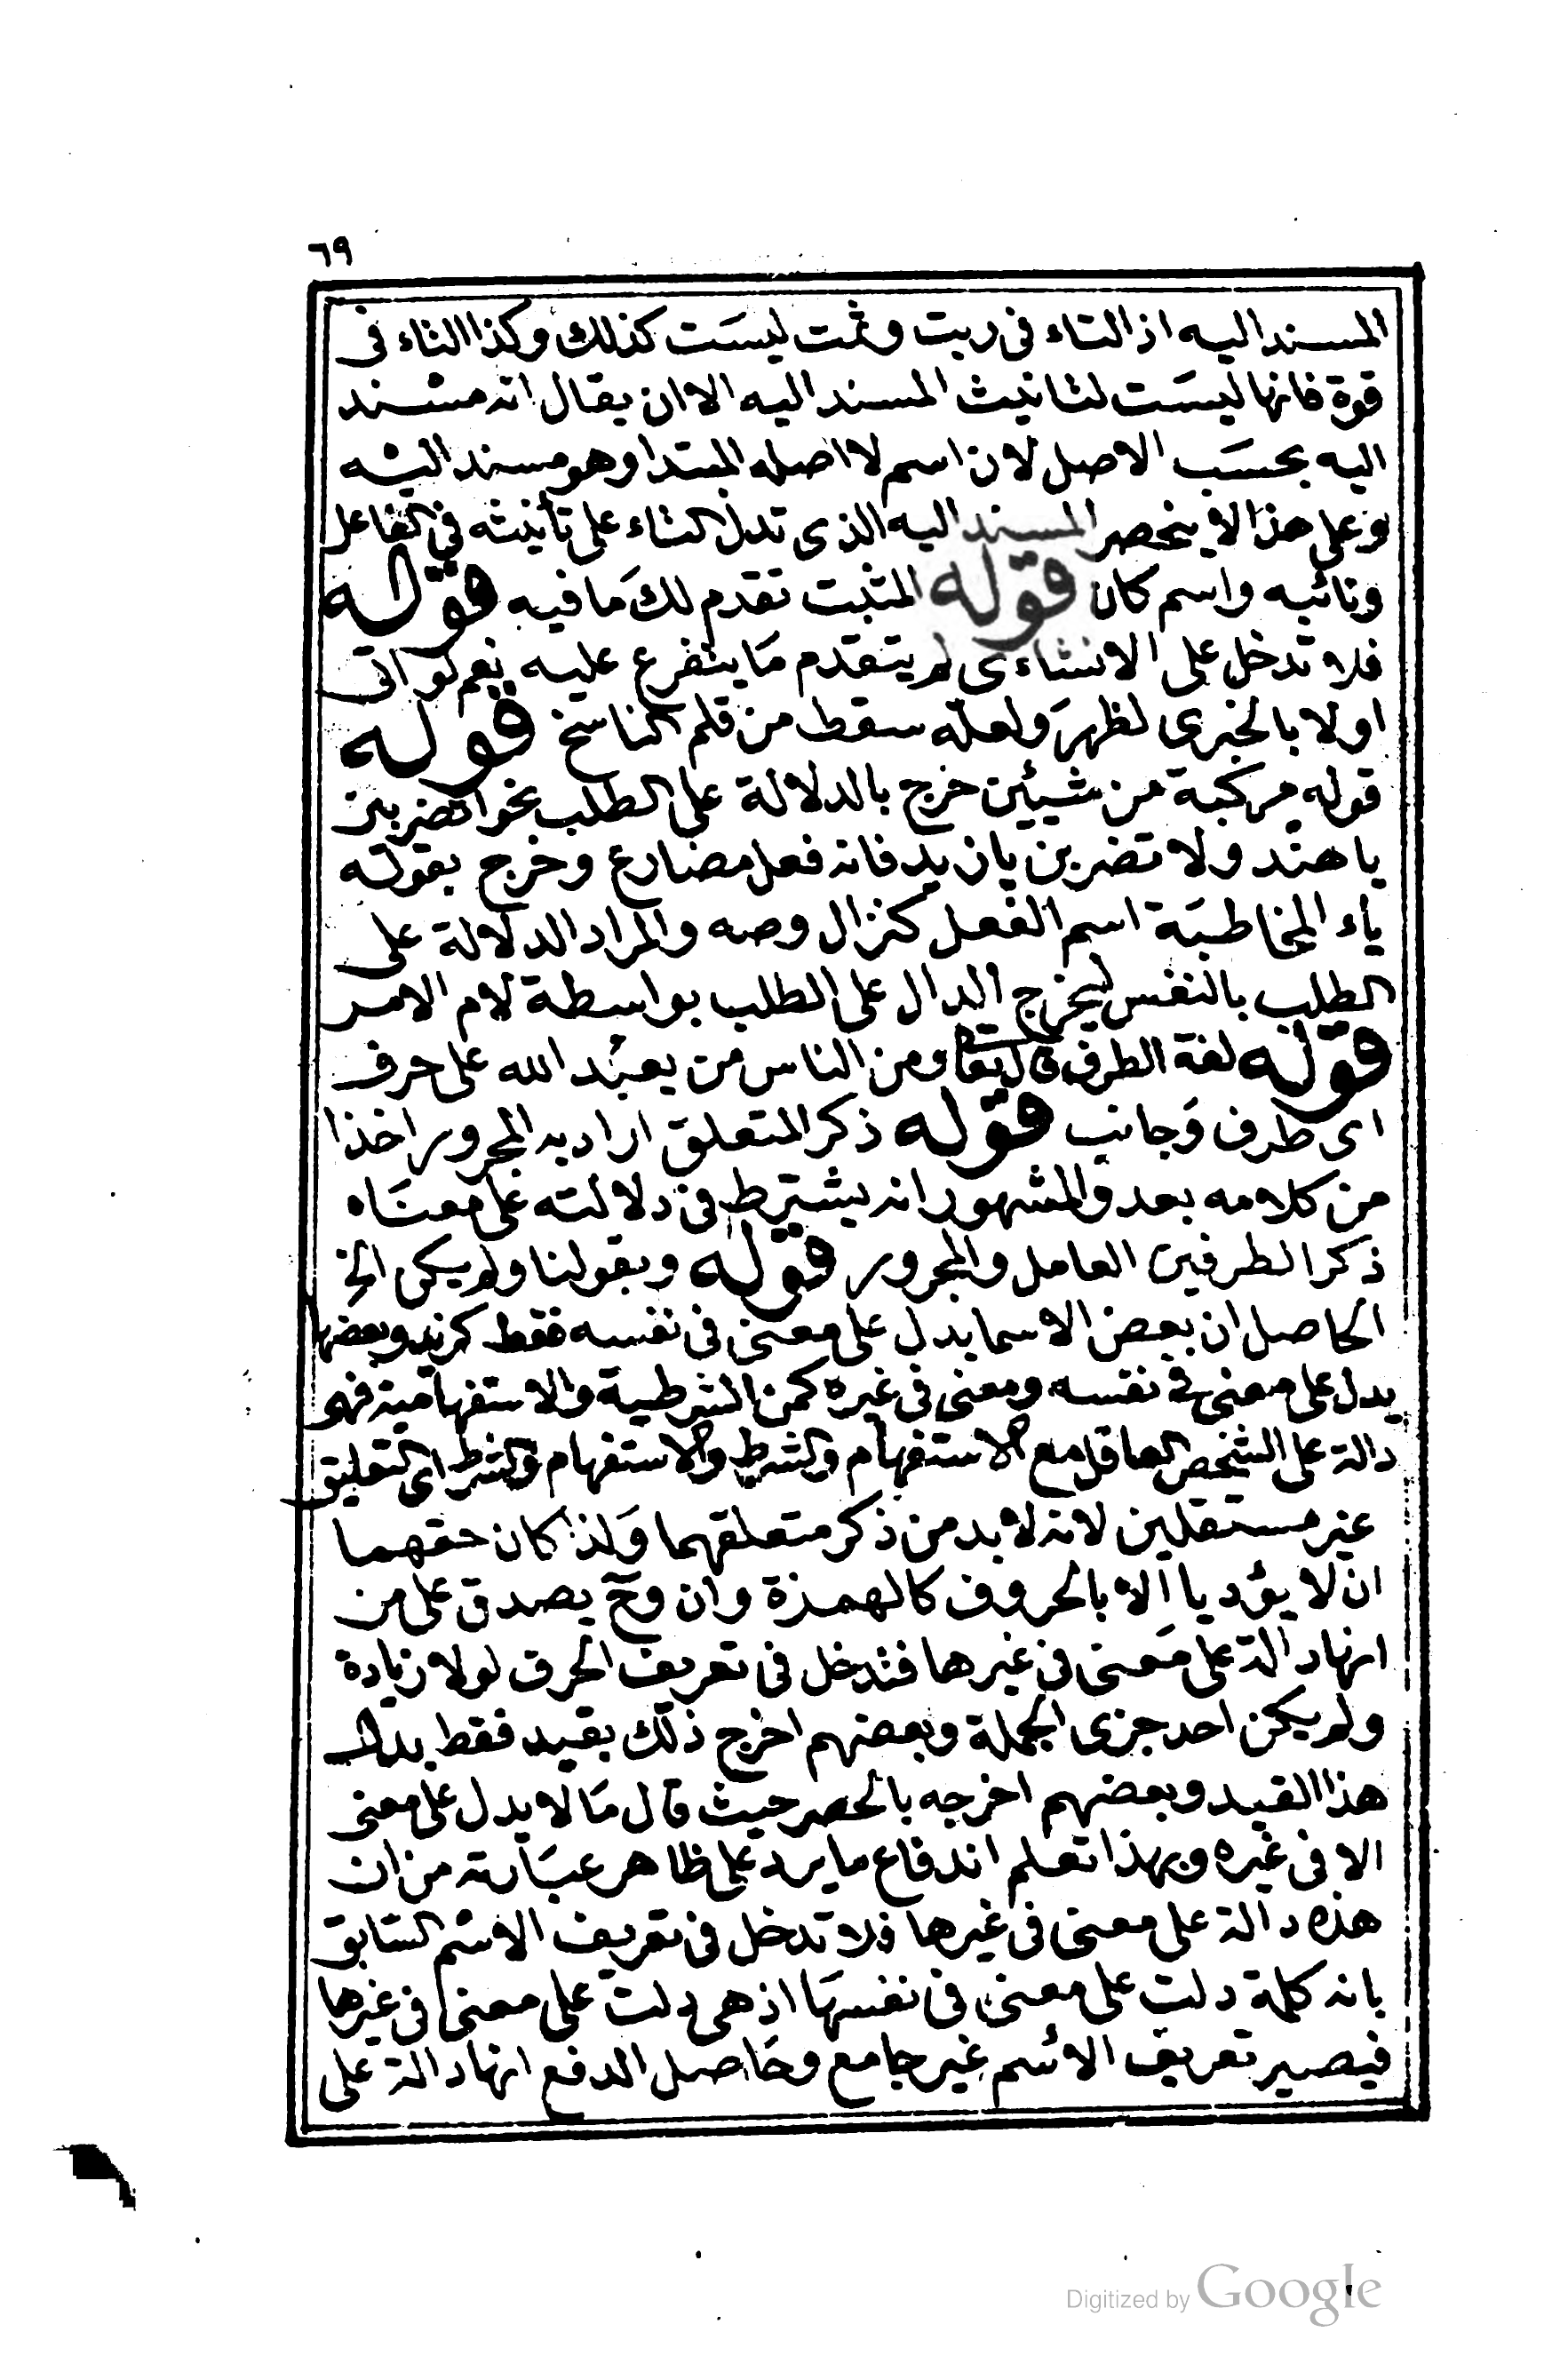 ٦٩
المسند اليه اذ التاء فى ربت وثمت ليست كذلك وكذا التاء فى
قوة فانها ليست لتانيث المسند اليه الا ان يقال انه مسند
اليه بحسب الاصل لان اسم لا اصله المبتدا وهو مسند اليه
وعلى هذا لا ينحصر المسند اليه الذى تدل التاء على تأنيثه فى الفاعل
ونائبه واسم كان قوله المثبت تقدم لك ما فيه قوله
فلا تدخل على الانشاءى لم يتقدم ما يتفرع عليه نعم لو اتى
اولا بالخبرى لظهر ولعله سقط من قلم الناسخ قوله
قوله مركبة من شيئين خرج بالدلالة على الطلب نحو اتضربين
يا هند ولا تضربن يا زيد فانه فعل مضارع وخرج بقوله
ياء المخاطبة اسم الفعل كنزال وصه والمراد الدلالة على
الطلب بالنفس ليخرج الدال على الطلب بواسطة لام الامر
قوله لغة الطرف قال تعا ومن الناس من يعبد الله على حرف
اى طرف وجانب قوله ذكر المتعلق اراد به المجرور اخذا
من كلامه بعد والمشهور انه يشترط فى دلالته على معناه
ذكر الطرفين العامل والمجرور قوله وبقولنا ولم يكن الخ
الحاصل ان بعض الاسما يدل على معنى فى نفسه فقط كزيد وبعضها
يدل على معنى فى نفسه ومعنى فى غيره كمن الشرطية والاستفهامية فهى
دالة على الشخص العاقل مع الاستفهام والشرط والاستفهام والشرط اى التعليق
غير مستقلين لانه لا بد من ذكر متعلقهما ولذا كان حقهما
ان لا يؤديا الا بالحروف كالهمزة وان وح يصدق على من
انها دالة على معنى فى غيرها فتدخل فى تعريف الحرف لولا زيادة
ولم يكن احد جزى الجملة وبعضهم اخرج ذلك بقيد فقط بدل
هذا القيد وبعضهم اخرجه بالحصر حيث قال ما لا يدل على معنى
الا فى غيره وبهذا تعلم اندفاع ما يرد على ظاهر عبارته من ان
هذه دالة على معنى فى غيرها فلا تدخل فى تعريف الاسم السابق
بانه كلمة دلت على معنى فى نفسها اذ هى دلت على معنى فى غيرها
فيصير تعريف الاسم غير جامع وحاصل الدفع انها دالة على
Digitized by Google